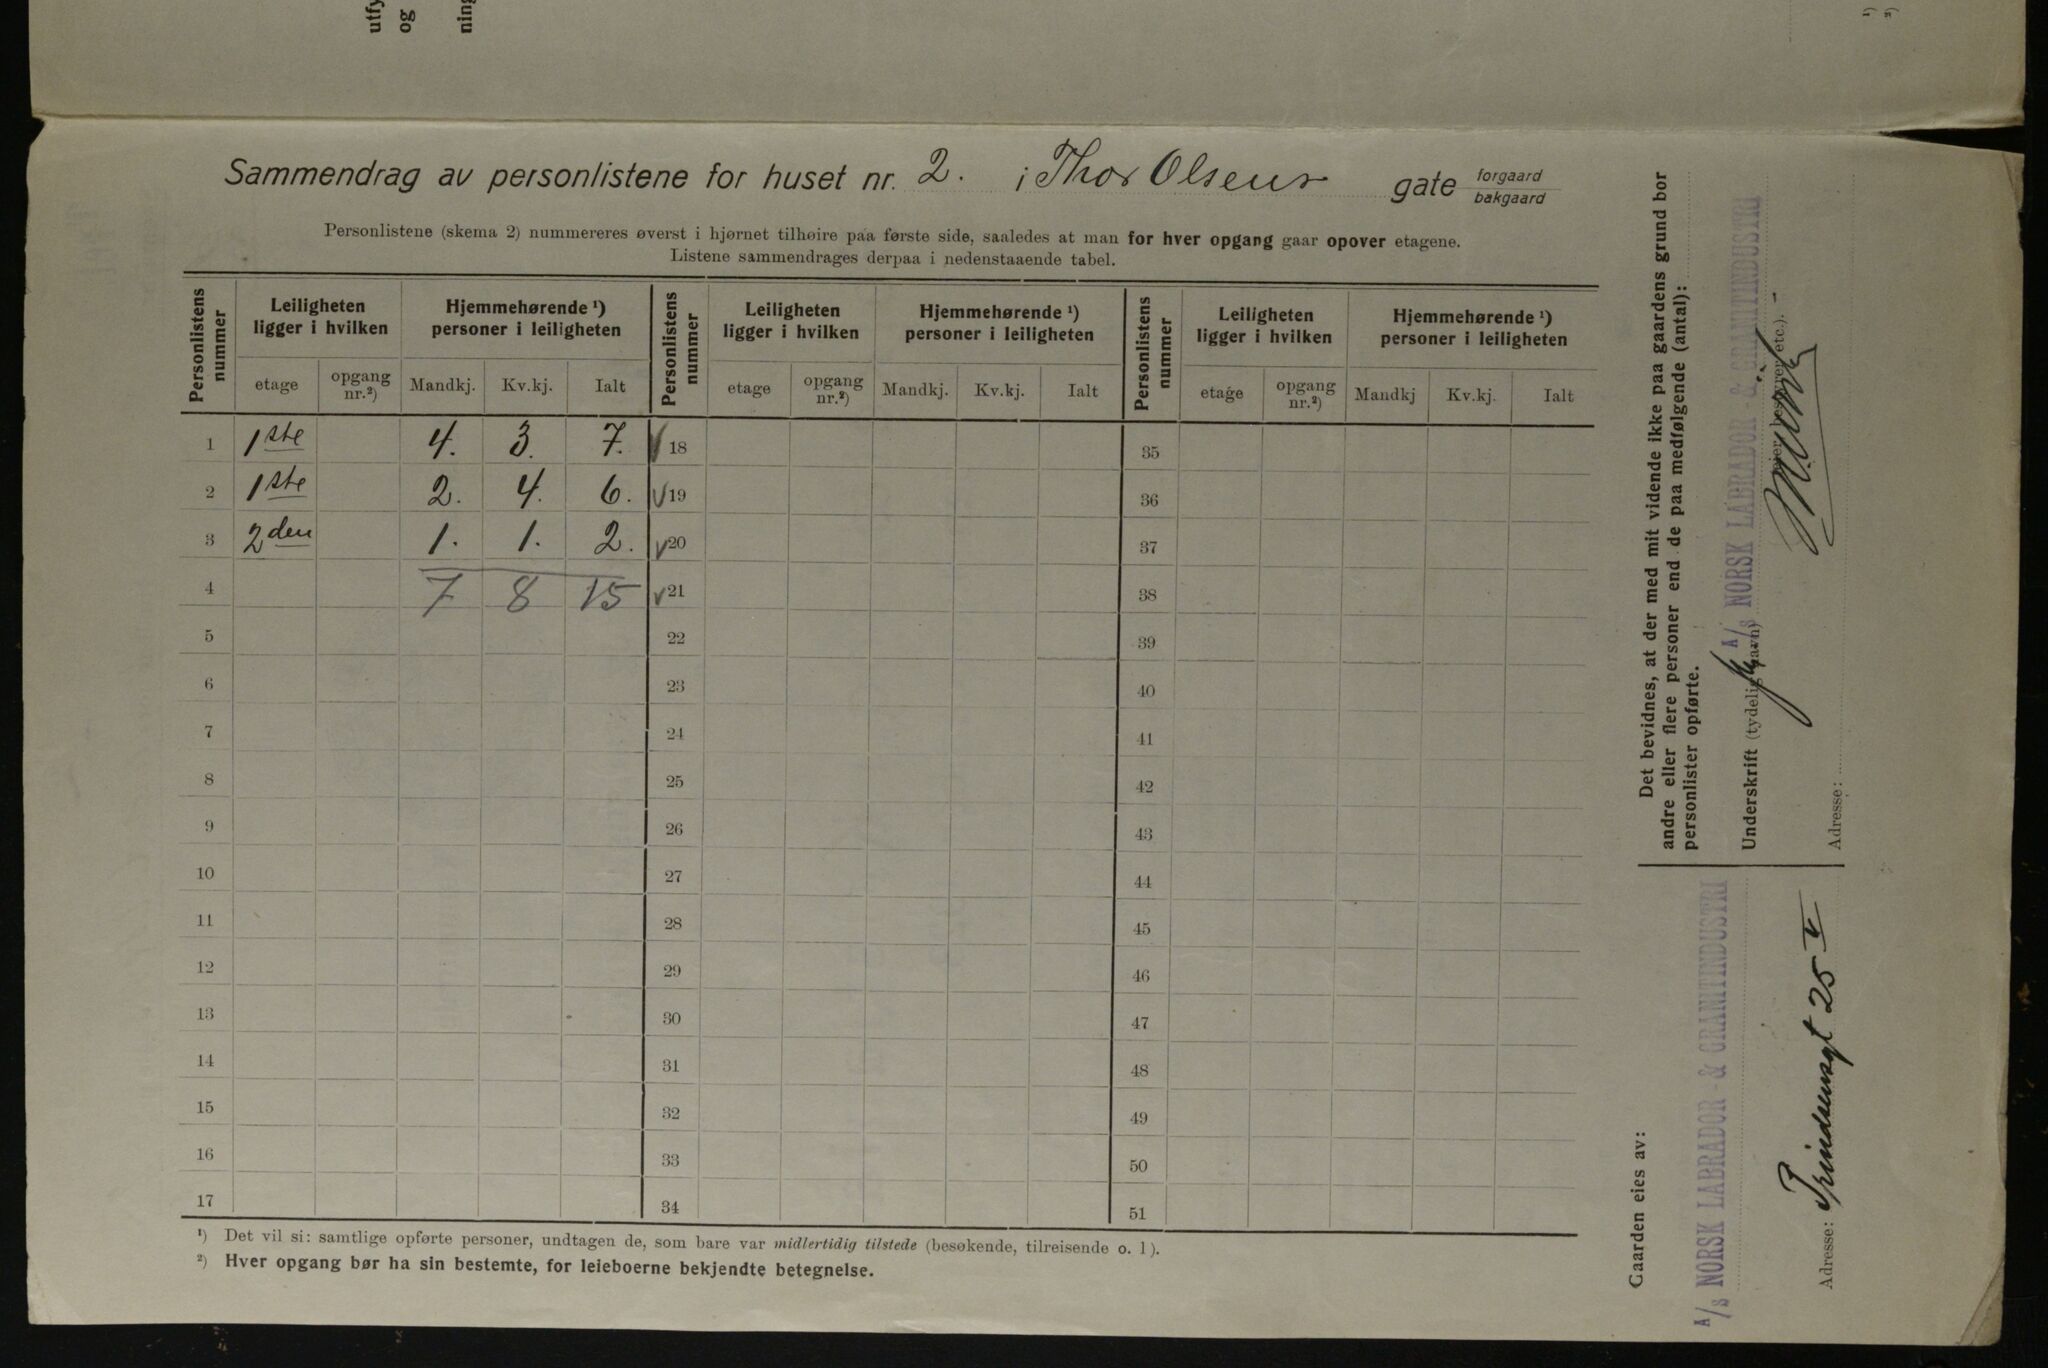 utfy
og
ning
¹)
²)
Sammendrag av personlistene for huset nr. 2. i Thor Olsens gate forgaard
bakgaard
Personlistene (skema 2) nummereres øverst i hjørnet tilhøire paa første side, saaledes at man for hver opgang gaar opover etagene.
Listene sammendrages derpaa i nedenstaaende tabel.
Personlistens nummer | Leiligheten ligger i hvilken | Hjemmehørende ¹) personer i leiligheten | Personlistens nummer | Leiligheten ligger i hvilken | Hjemmehørende ¹) personer i leiligheten | Personlistens nummer | Leiligheten ligger i hvilken | Hjemmehørende ¹) personer i leiligheten
etage | opgang nr.²) | Mandkj. | Kv.kj. | Ialt | etage | opgang nr.²) | Mandkj. | Kv.kj. | Ialt | etage | opgang nr.²) | Mandkj | Kv.kj. | Ialt
1 1ste 4. 3. 7. 18 35
2 1ste 2. 4. 6. 19 36
3 2den 1. 1. 2. 20 37
4 7 8 15 21 38
5 22 39
6 23 40
7 24 41
8 25 42
9 26 43
10 27 44
11 28 45
12 29 46
13 30 47
14 31 48
15 32 49
16 33 50
17 34 51
¹) Det vil si: samtlige opførte personer, undtagen de, som bare var midlertidig tilstede (besøkende, tilreisende o. l).
²) Hver opgang bør ha sin bestemte, for leieboerne bekjendte betegnelse.
Det bevidnes, at der med mit vidende ikke paa gaardens grund bor
andre eller flere personer end de paa medfølgende (antal):
personlister opførte.
A/S NORSK LABRADOR- & GRANITINDUSTRI
Underskrift (tydelig navn)
(eier, bestyrer etc.).
Adresse:
Gaarden eies av:
A/S NORSK LABRADOR- & GRANITINDUSTRI
Adresse: Prindsensgt 25 V